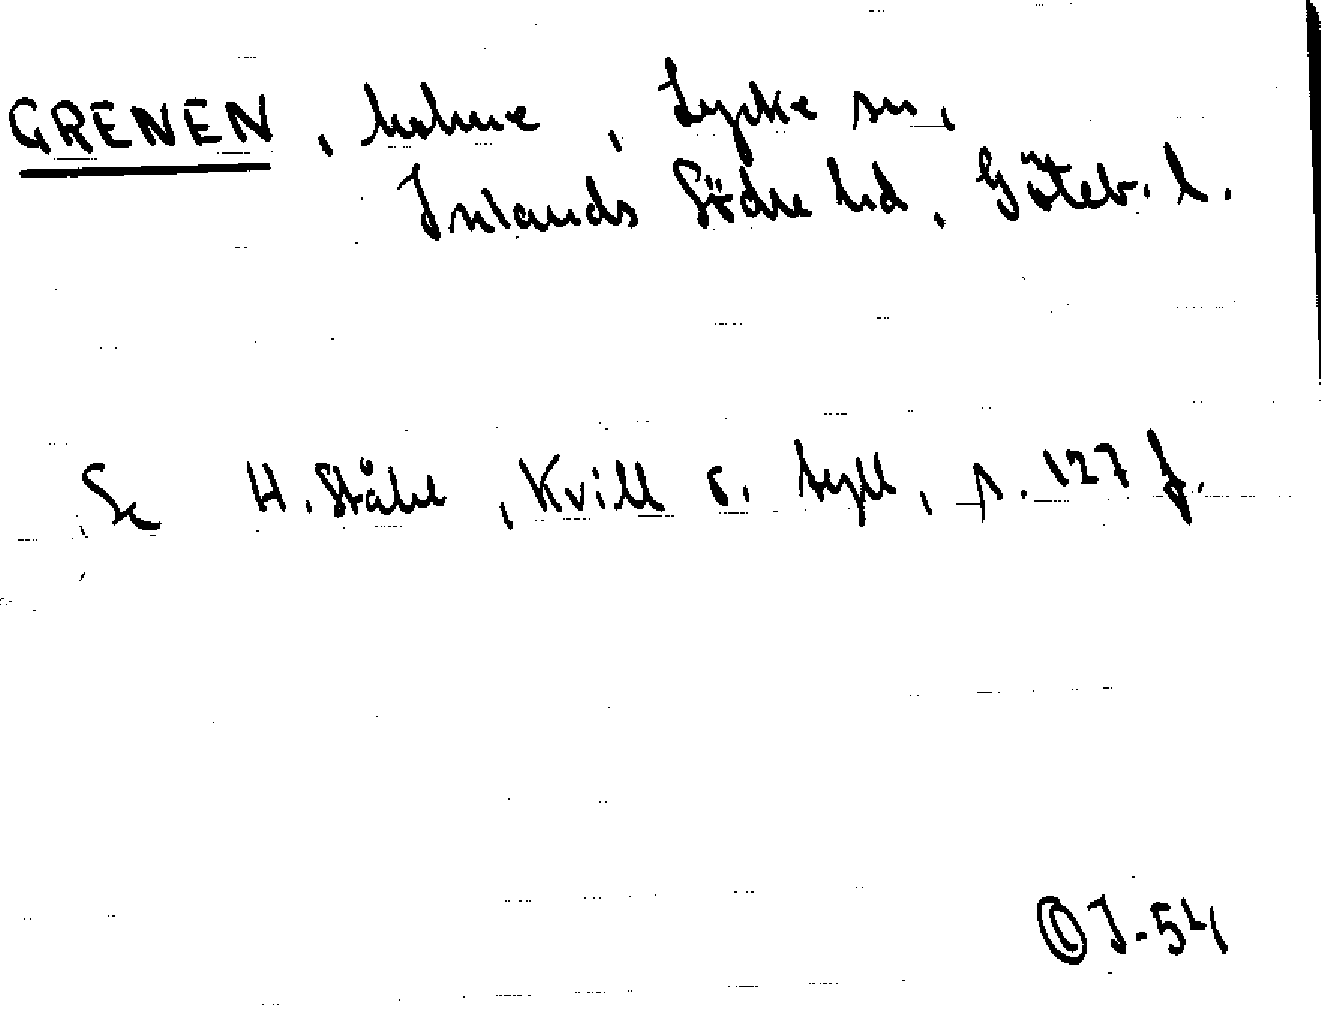 GRENEN, holme, Lycke sn,
Inlands Södre hd, Göteb. l.
Se H. Ståhl, Kvill o. tyll, s. 127 f.
OJ-54